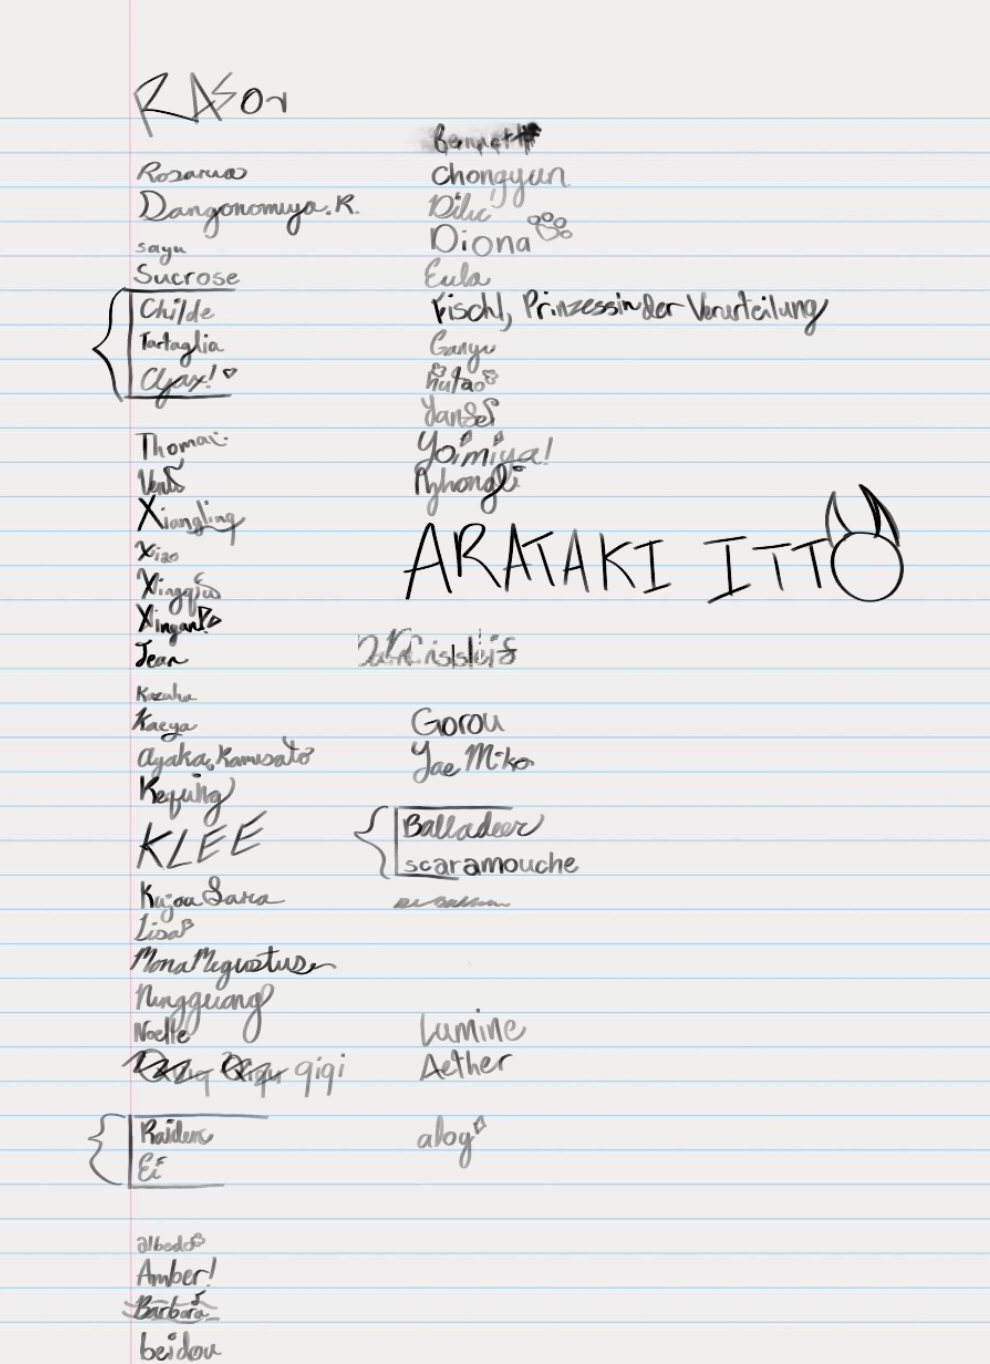 RAZOR
Rosaria
Dangonomiya.K.
sayu
Sucrose
Childe
Tartaglia
Ajax!
Thoma
Venti
Xiangling
Xiao
Xingqiu
Xinyan
Jean
Kazuha
Kaeya
Ayaka, Kamisato
Keqing
KLEE
Kujou Sara
Lisa
Mona Megistus
Ningguang
Noelle
qiqi
Raiden
Ei
albedo
Amber!
Barbara
beidou
Bennett
Chongyun
Diluc
Diona
Eula
Fischl, Prinzessin der Verurteilung
Ganyu
hutao
Yanfei
Yoimiya!
Zhongli
ARATAKI ITTO
Gorou
Yae Miko
Balladeer
scaramouche
Lumine
Aether
aloy